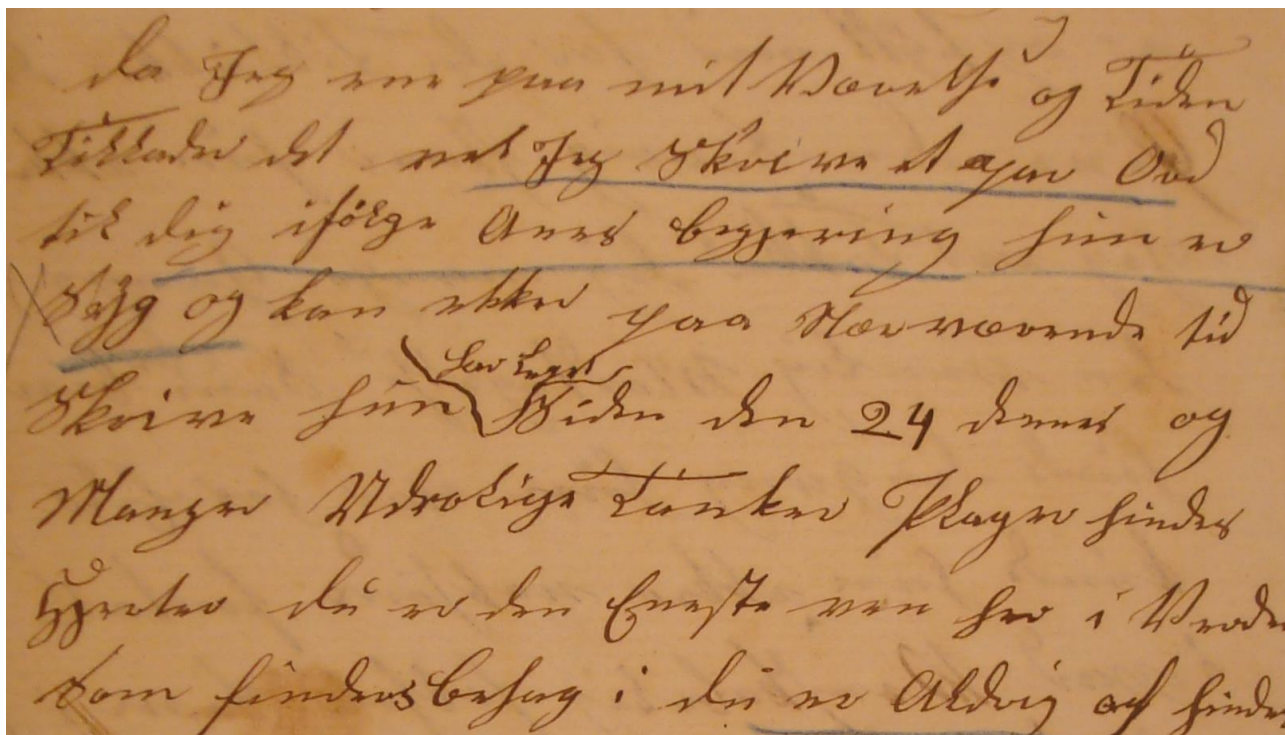 da Jeg ene paa mit Værelse og Tiden
Tillader det vel Jeg Skrive et par Ord
til dig ifølge Anes begjering hun er
Syg og kan ikke paa Nærværende tid
Skrive hun har leget Siden den 24 denes og
Mange Udrolige Tanker Plager hindes
Hjerter du er den Eneste ven her i Verden
Som finders behag i du er Aldrig af hindes